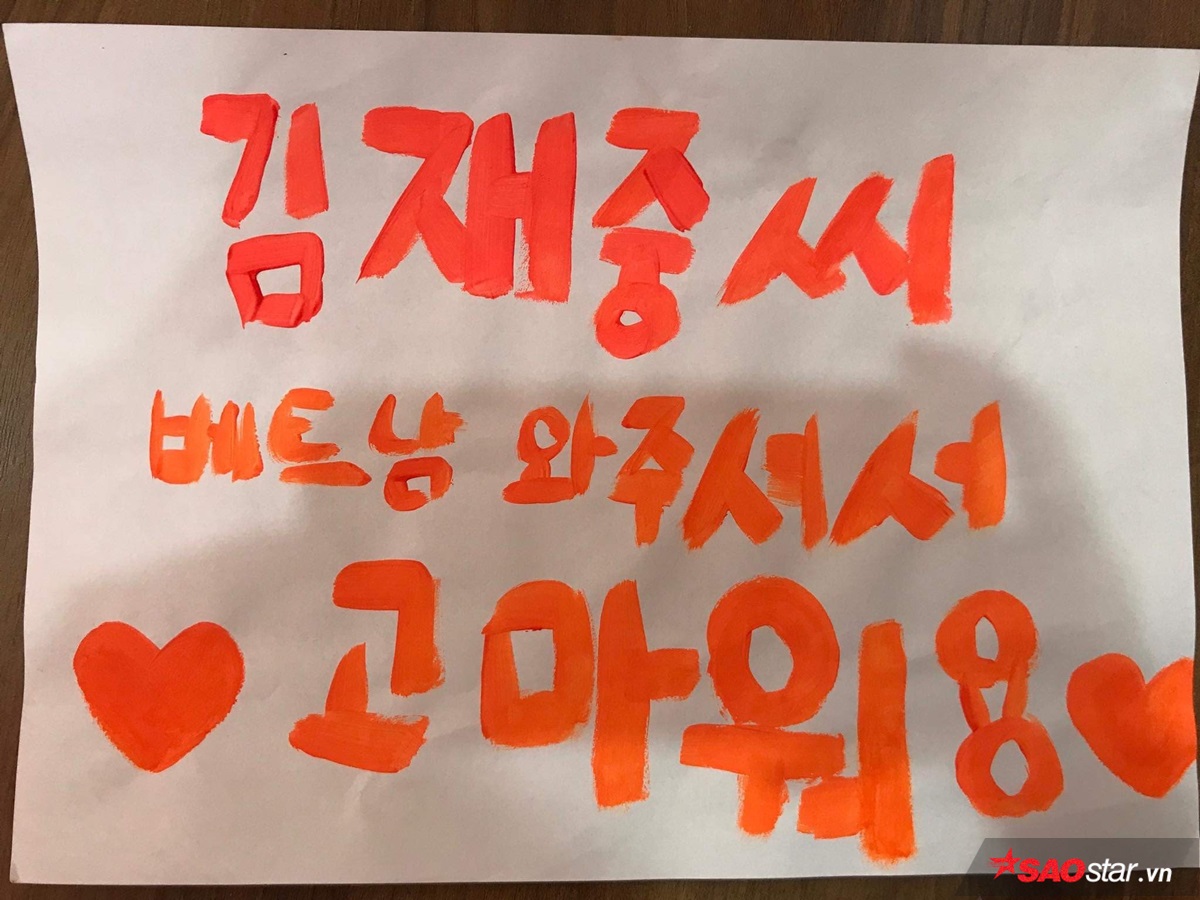 김재중씨
베트남 와주셔서
고마워용
SAOstar.vn